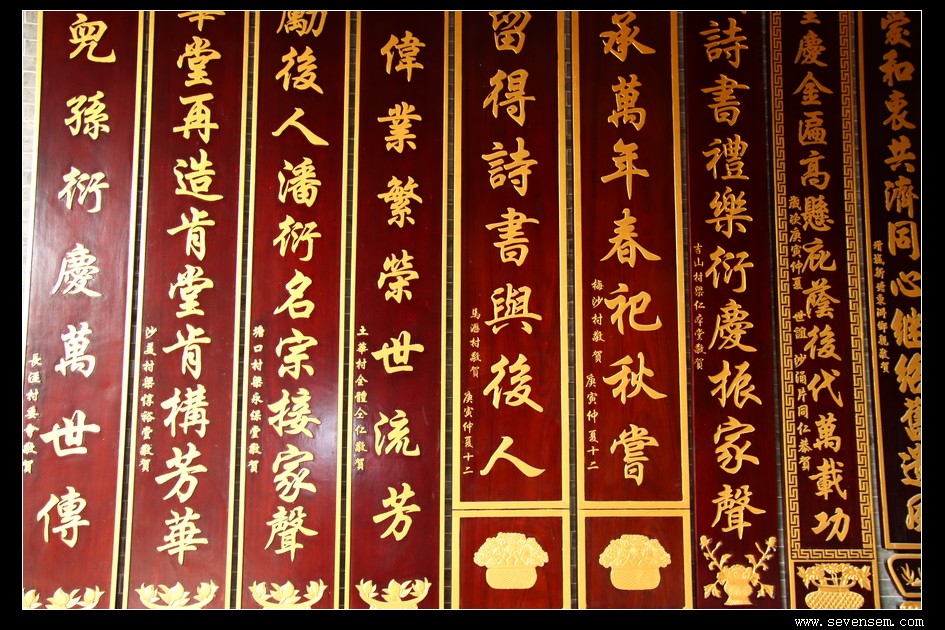 和衷共濟同心继绝舊
敬賀
慶金遍高懸庇蔭後代萬載功
歲次庚寅仲夏
世誼 沙涌片同仁恭賀
詩書禮樂衍慶振家聲
吉山村梁仁本堂敬賀
承萬年春祀秋嘗
梅沙村敬賀 庚寅仲夏十二
留得詩書與後人
馬滘村敬賀 庚寅仲夏十二
偉業繁榮世流芳
土華村全體仝仁敬賀
勵後人潘衍名宗接家聲
塘口村梁永保堂敬賀
華堂再造肯堂肯構芳華
沙夏村梁惇裕堂敬賀
兒孫衍慶萬世傳
長湴村會敬賀
www.sevensem.com